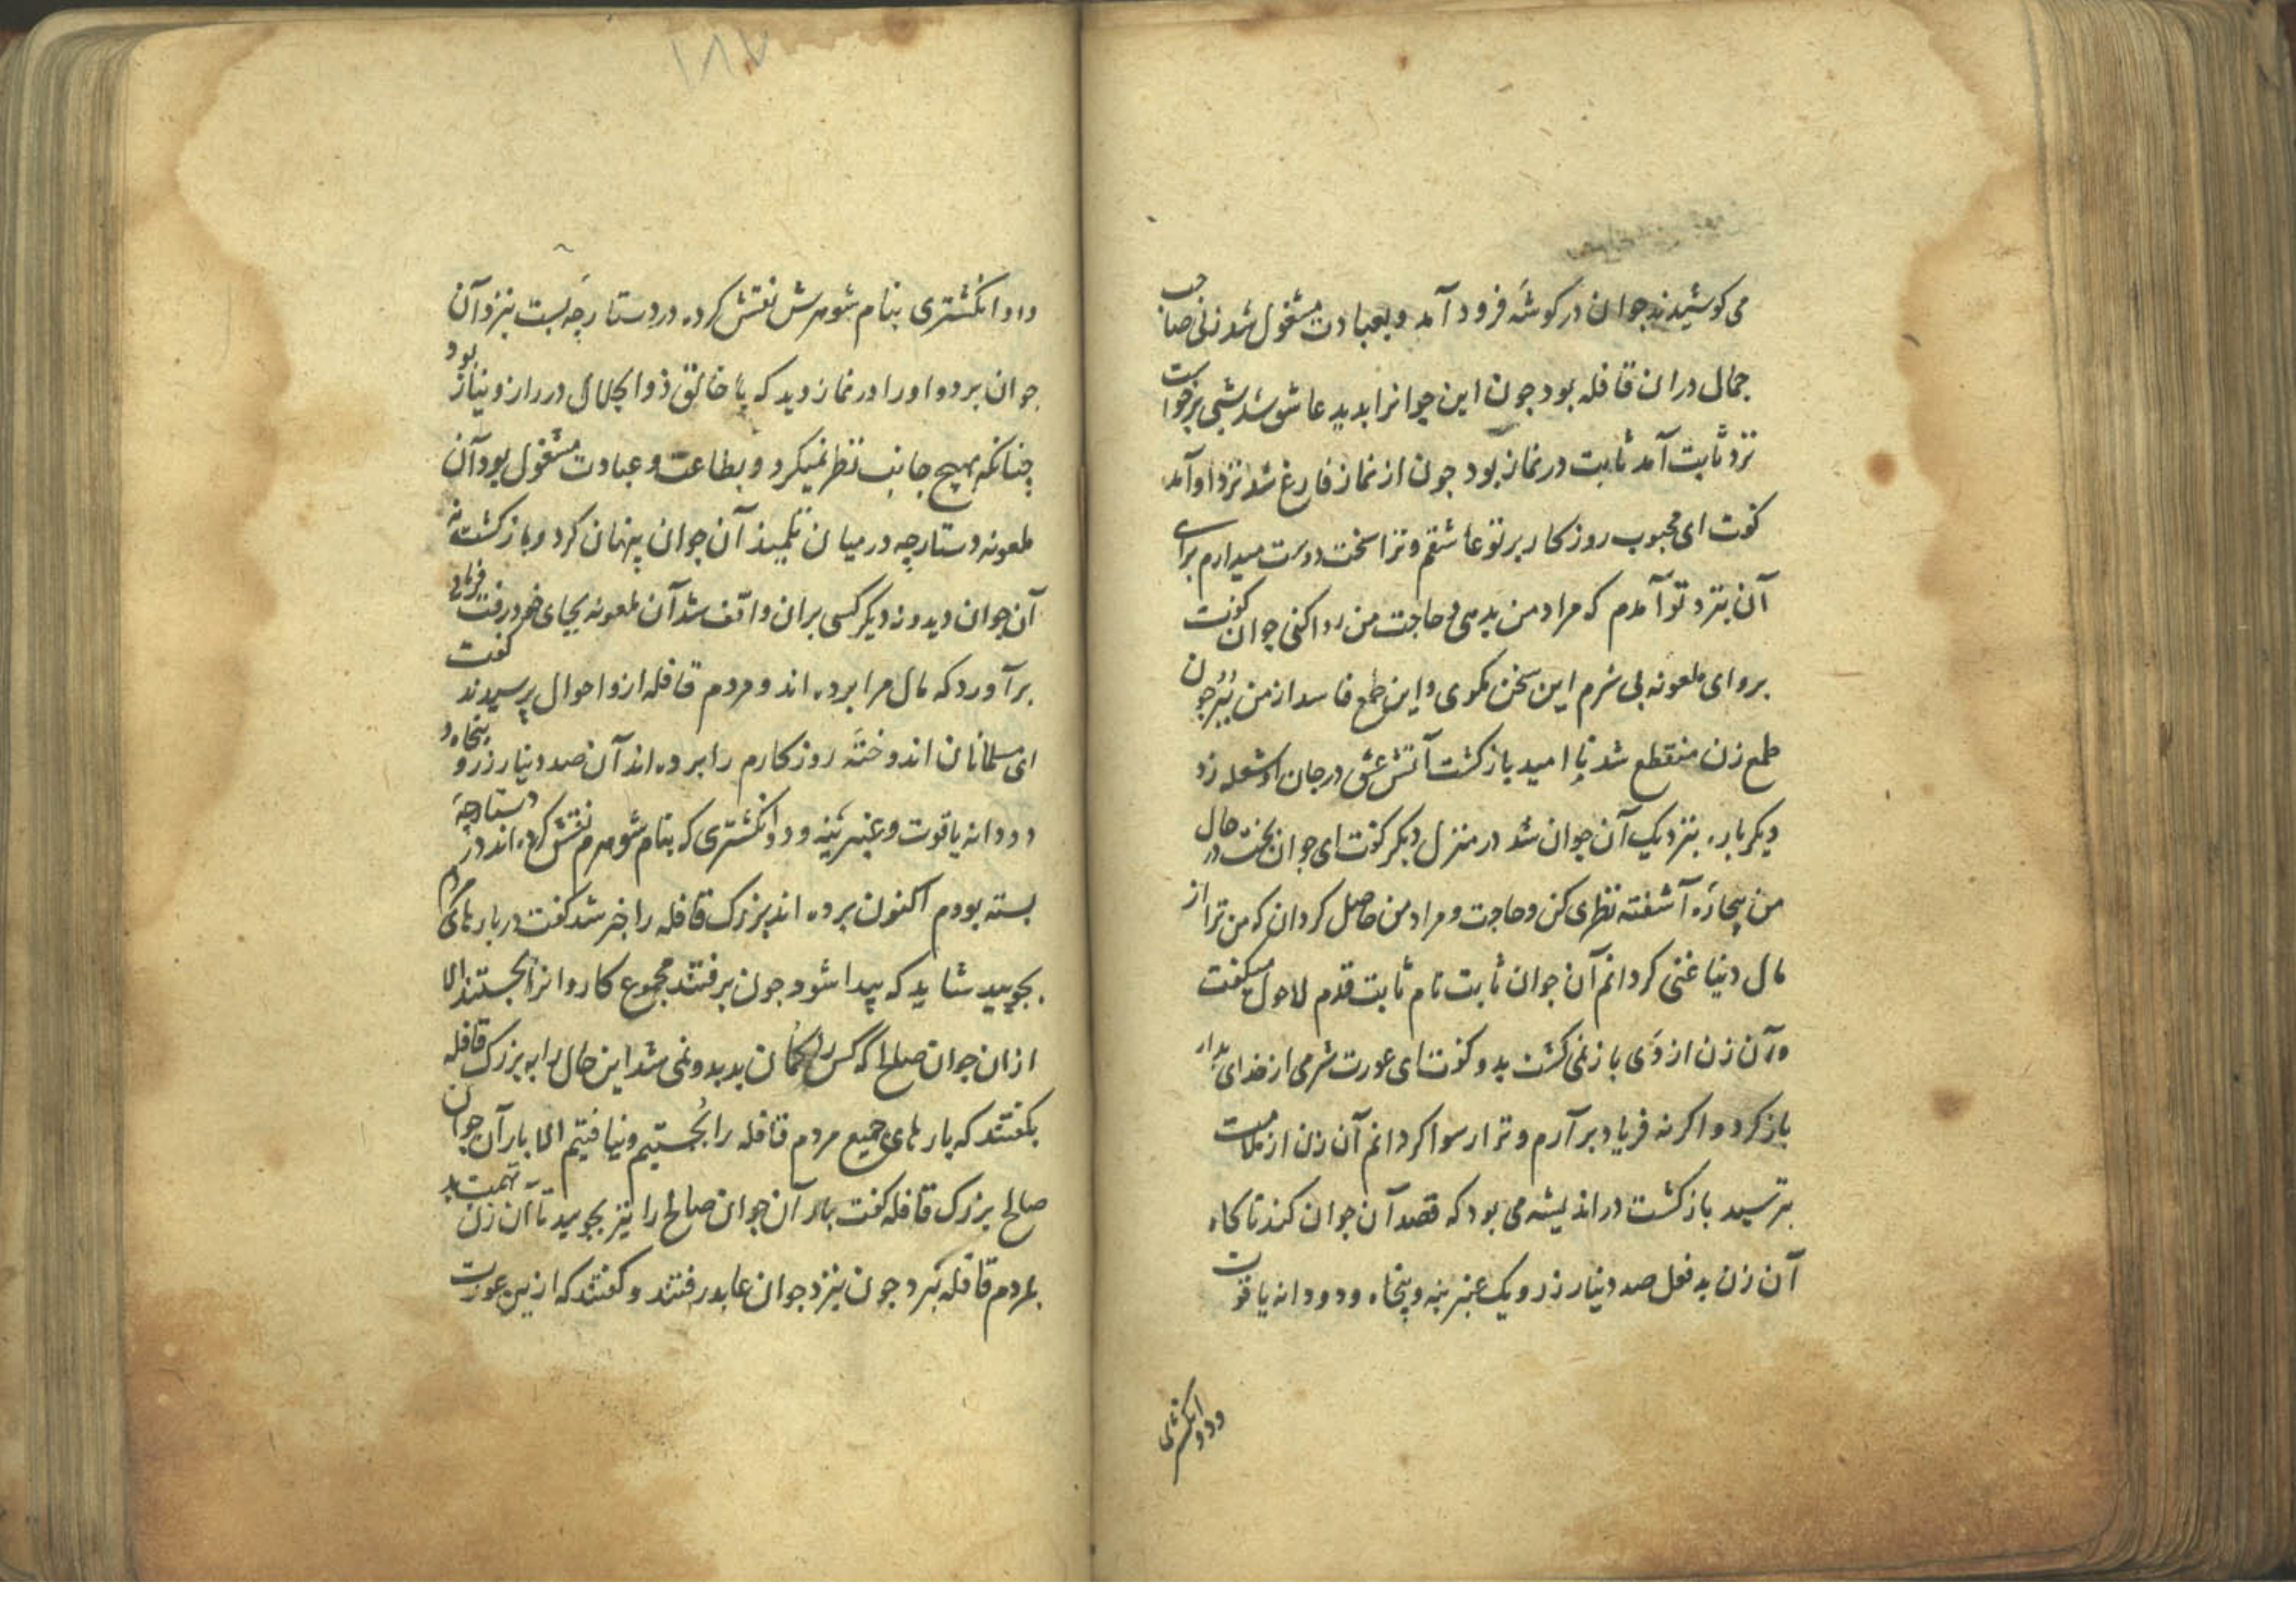 می کوشیدند جوان در کوشهٔ فرود آمد و بعبادت مشغول شد زنی صاحب
جمال دران قافله بود جون این جوانرا بدید عاشق شد شبی برخواست
نزد ثابت آمد ثابت در نماز بود جون از نماز فارغ شد نزد او آمد
کفت ای محبوب روزکار بر تو عاشقم و ترا سخت دوست میدارم برای
آن بنزد تو آمدم که مراد من بدهی و حاجت من روا کنی جوان کفت
برو ای ملعونه بی شرم این سخن مکوی و این طمع فاسد از من ببر جون
طمع زن منقطع شد نا امید بازکشت آتش عشق در جان او شعله زد
دیکر باره بنزدیک آن جوان شد در منزل دیکر کفت ای جوان بخت در حال
من بیچارهٔ آشفته نظری کن و حاجت و مراد من حاصل کردان که من ترا از
مال دنیا غنی کردانم آن جوان ثابت نام ثابت قدم لاحول میکفت
وآن زن از وی باز نمی کشت بدو کفت ای عورت شرمی از خدای بدار
باز کرد و اکر نه فریاد برآرم و ترا رسوا کردانم آن زن از ملامت
بترسید بازکشت در اندیشه می بود که قصد آن جوان کند تا کاه
آن زن بد فعل صد دینار زر و یک عنبرینه و پنجاه و دو دانه یاقوت
و دو انکشتری
١٨٧
و دو انکشتری بنام شوهرش نقش کرده در دستارچهٔ بست بنزد آن
جوان برد و او را در نماز دید که با خالق ذوالجلال در راز و نیاز بود
چنانکه بهیچ جانب نظر نمیکرد و بطاعت و عبادت مشغول بود آن
ملعونه دستارچه در میان آن جوان پنهان کرد و بازکشت نه
آن جوان دید و نه دیکر کسی بران واقف شد آن ملعونه بجای خود رفت فریاد
برآورد که مال مرا برده اند و مردم قافله ازو احوال پرسیدند کفت
ای مسلمانان اندوختهٔ روزکارم را برده اند آن صد دینار زر و پنجاه و
دو دانه یاقوت و عنبرینه و دو انکشتری که بنام شوهرم نقش کرده اند در دستارچهٔ
بسته بودم اکنون برده اند بزرک قافله را خبر شد کفت در بارهای مردم
بجویید شاید که پیدا شود جون برفتند مجموع کاروانرا بجستند الا
ازان جوان صالح که کس را کمان بد بدو نمی شد این حال را به بزرک قافله
بکفتند که بارهای جمیع مردم قافله را بجستیم و نیافتیم الا بار آن جوان
صالح بزرک قافله کفت بار آن جوان صالح را نیز بجویید تا آن زن تهمت بد
بمردم قافله نبرد جون بنزد جوان عابد رفتند و کفتند که ازین عورت